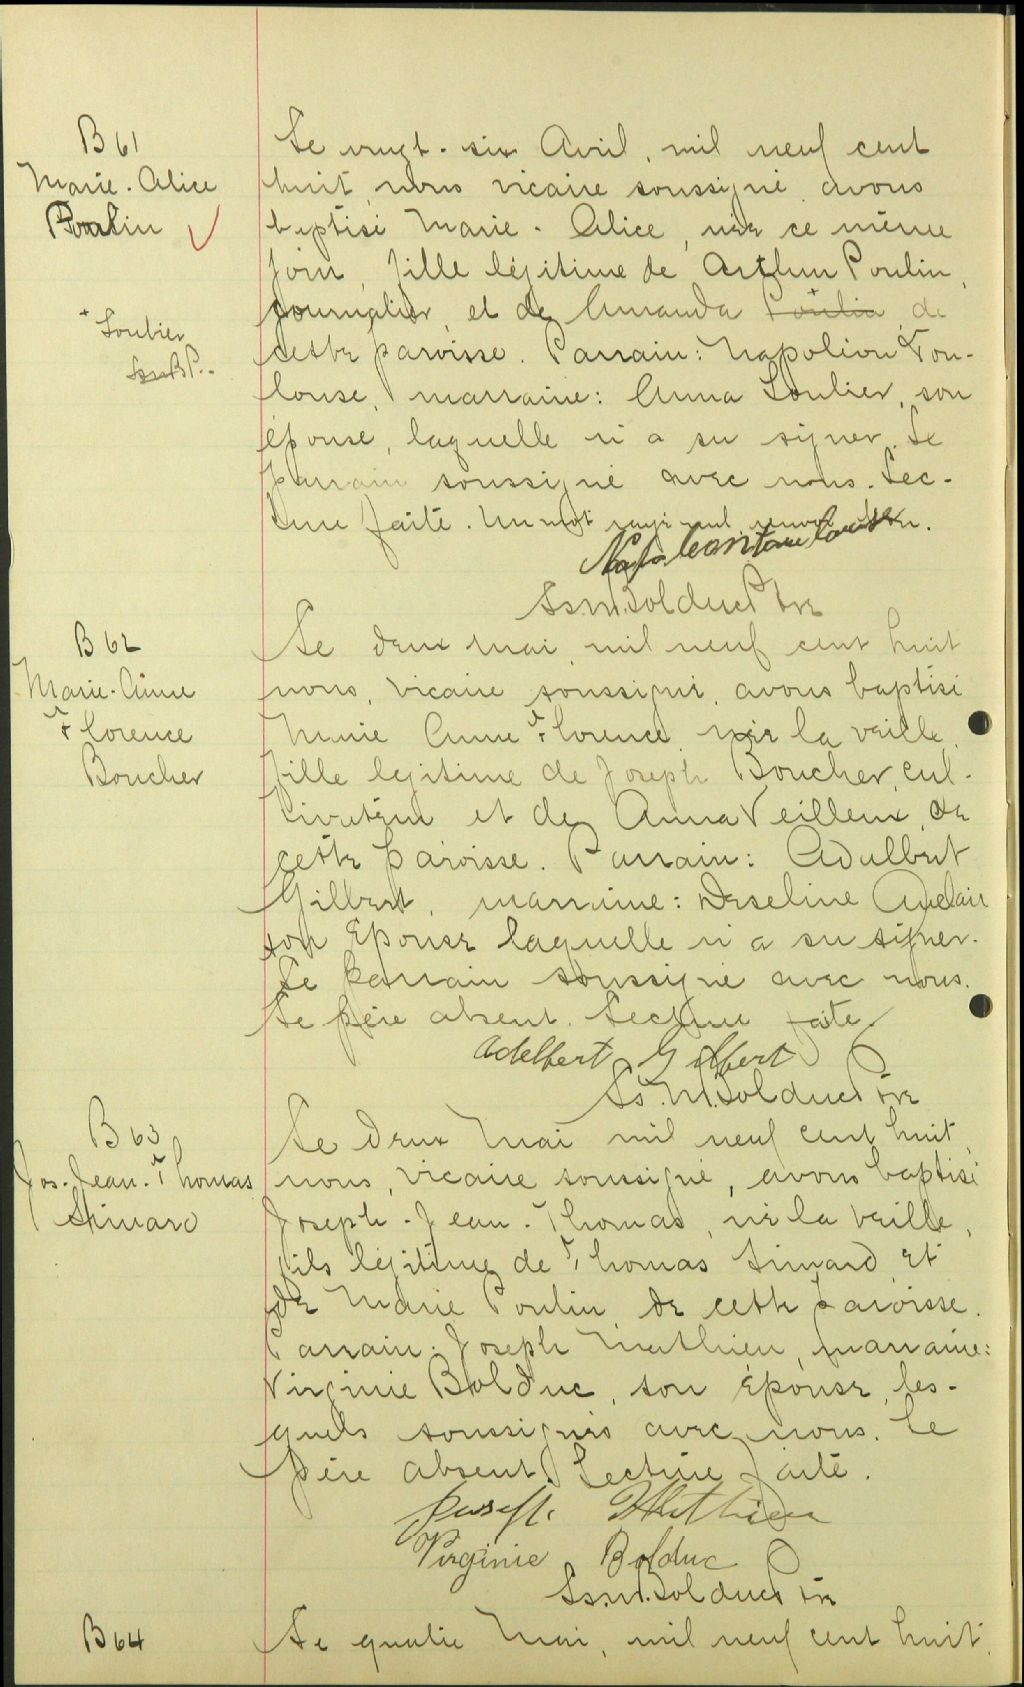 B 61
Marie-Alice
Poulin
+ Loubier
Le vingt-six Avril, mil neuf cent
huit, nous vicaire soussigné avons
baptisé Marie-Alice, née ce même
jour, fille légitime de Arthur Poulin,
journalier, et de Amanda + Poulin de
cette paroisse. Parrain: Napoléon Tou-
louse, marraine: Anna Loubier, son
épouse, laquelle n'a su signer. Le
parrain soussigné avec nous. Lec-
ture faite. Un mot rayé nul, renvoi
Napoléon Toulouse
Ls. M. Bolduc Ptre
B 62
Marie-Anne
Florence
Boucher
Le deux mai, mil neuf cent huit
nous, vicaire soussigné, avons baptisé
Marie Anne Florence, née la veille,
fille légitime de Joseph Boucher, cul-
tivateur et de Anna Veilleux, de
cette paroisse. Parrain: Adalbert
Gilbert, marraine: Deseline Auclair
son épouse laquelle n'a su signer.
Le parrain soussigné avec nous.
Le père absent. Lecture faite.
Adelbert Gilbert
Ls. M. Bolduc Ptre
B 63
Jos-Jean-Thomas
Simard
Le deux Mai mil neuf cent huit,
nous, vicaire soussigné, avons baptisé
Joseph-Jean-Thomas, né la veille,
fils légitime de Thomas Simard et
de Marie Poulin, de cette paroisse.
Parrain: Joseph Mathieu, marraine:
Virginie Bolduc, son épouse, les-
quels soussignés avec nous. Le
père absent. Lecture faite.
Joseph Mathieu
Virginie Bolduc
Ls. M. Bolduc Ptre
B 64
Le quatre Mai, mil neuf cent huit,